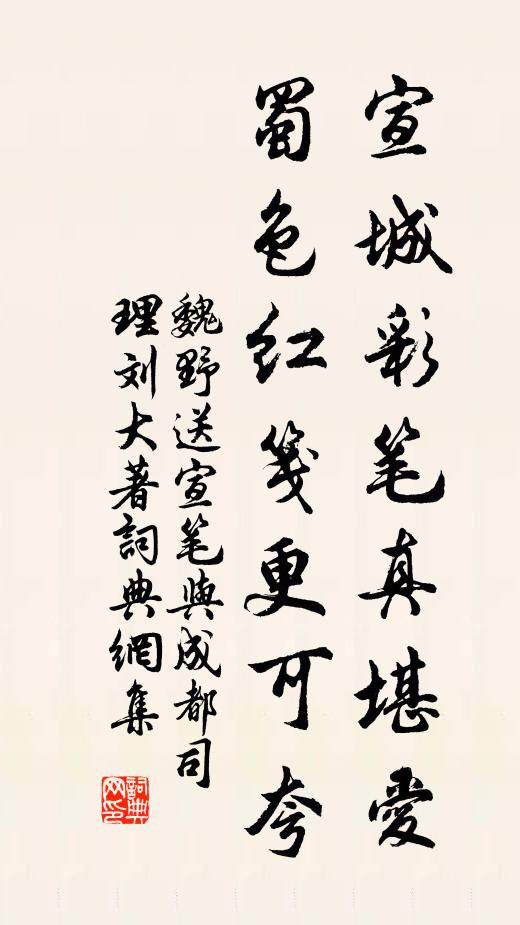 宣城彩笔真堪愛
蜀色红箋更可夸
魏野送宣笔與成都司
理刘大著詞典網集
詞典網印